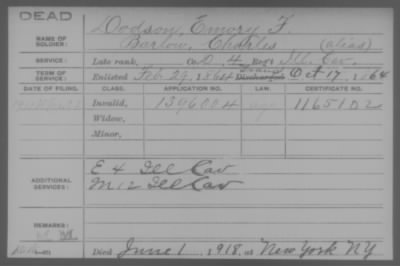 DEAD
NAME OF SOLDIER: Dodson, Emory F.
Barlow, Charles (alias)
SERVICE: Late rank, Co. D, 4 Reg't Ill. Cav.
TERM OF SERVICE: Enlisted Feb 29, 1864 Discharged Oct 17, 1864
DATE OF FILING. CLASS. APPLICATION NO. LAW. CERTIFICATE NO.
Invalid, 1396004 1165102
Widow,
Minor,
ADDITIONAL SERVICES: E 4 Ill Cav
M 12 Ill Cav
REMARKS:
Died June 1, 1918, at New York NY